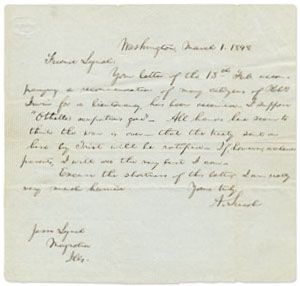 Washington, March 1. 1848
Friend Lynch:
Your letter of the 13th Feb. accom-
panying a recommendation of many citizens of
for a lieutenancy has been received I suppose
"Othello's occupation's gone" — All hands here seem to
think the war is over — that the treaty sent on
here by Trist will be ratified. If, however,
I will do the very best I can.
Excuse the shortness of this letter I am really
very much hurried
Yours truly
A. Lincoln
Jesse Lynch
Magnolia
Ills.